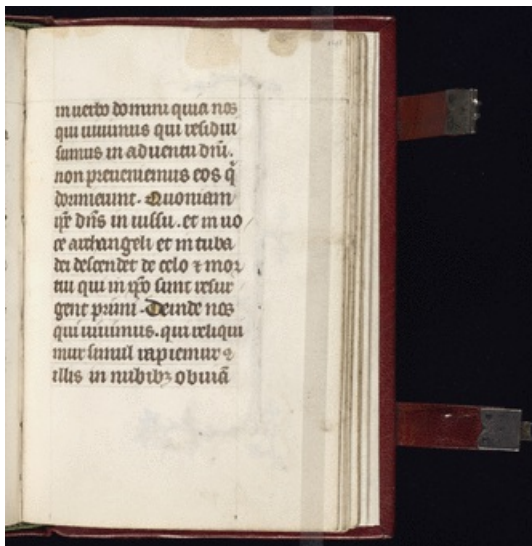 in uerbo domini quia nos
qui uiuimus qui residui
sumus in aduentu dñi.
non preueniemus eos q̄
dormierunt. Quoniam
ip̄e dñs in iussu. et in uo
ce archangeli et in tuba
dei descendet de celo ⁊ mor
tui qui in xp̄o sunt resur
gent primi. Deinde nos
qui uiuimus. qui reliqui
mur simul rapiemur ⁊
illis in nubibꝫ obuiā